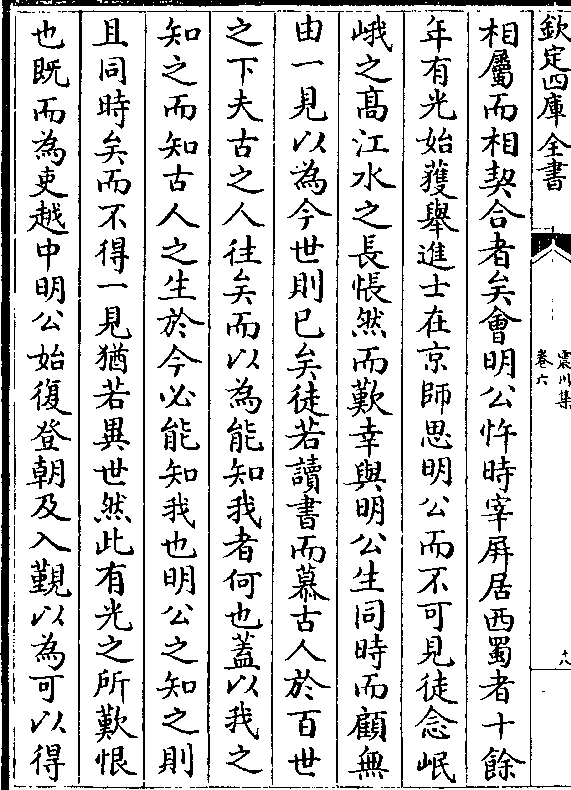 欽定四庫全書
震川集
卷六
十八
相屬而相契合者矣會明公忤時宰屏居西蜀者十餘
年有光始獲舉進士在京師思明公而不可見徒念岷
峨之髙江水之長悵然而歎幸與明公生同時而顧無
由一見以為今世則已矣徒若讀書而慕古人於百世
之下夫古之人往矣而以為能知我者何也蓋以我之
知之而知古人之生於今必能知我也明公之知之則
且同時矣而不得一見猶若異世然此有光之所歎恨
也既而為吏越中明公始復登朝及入覲以為可以得